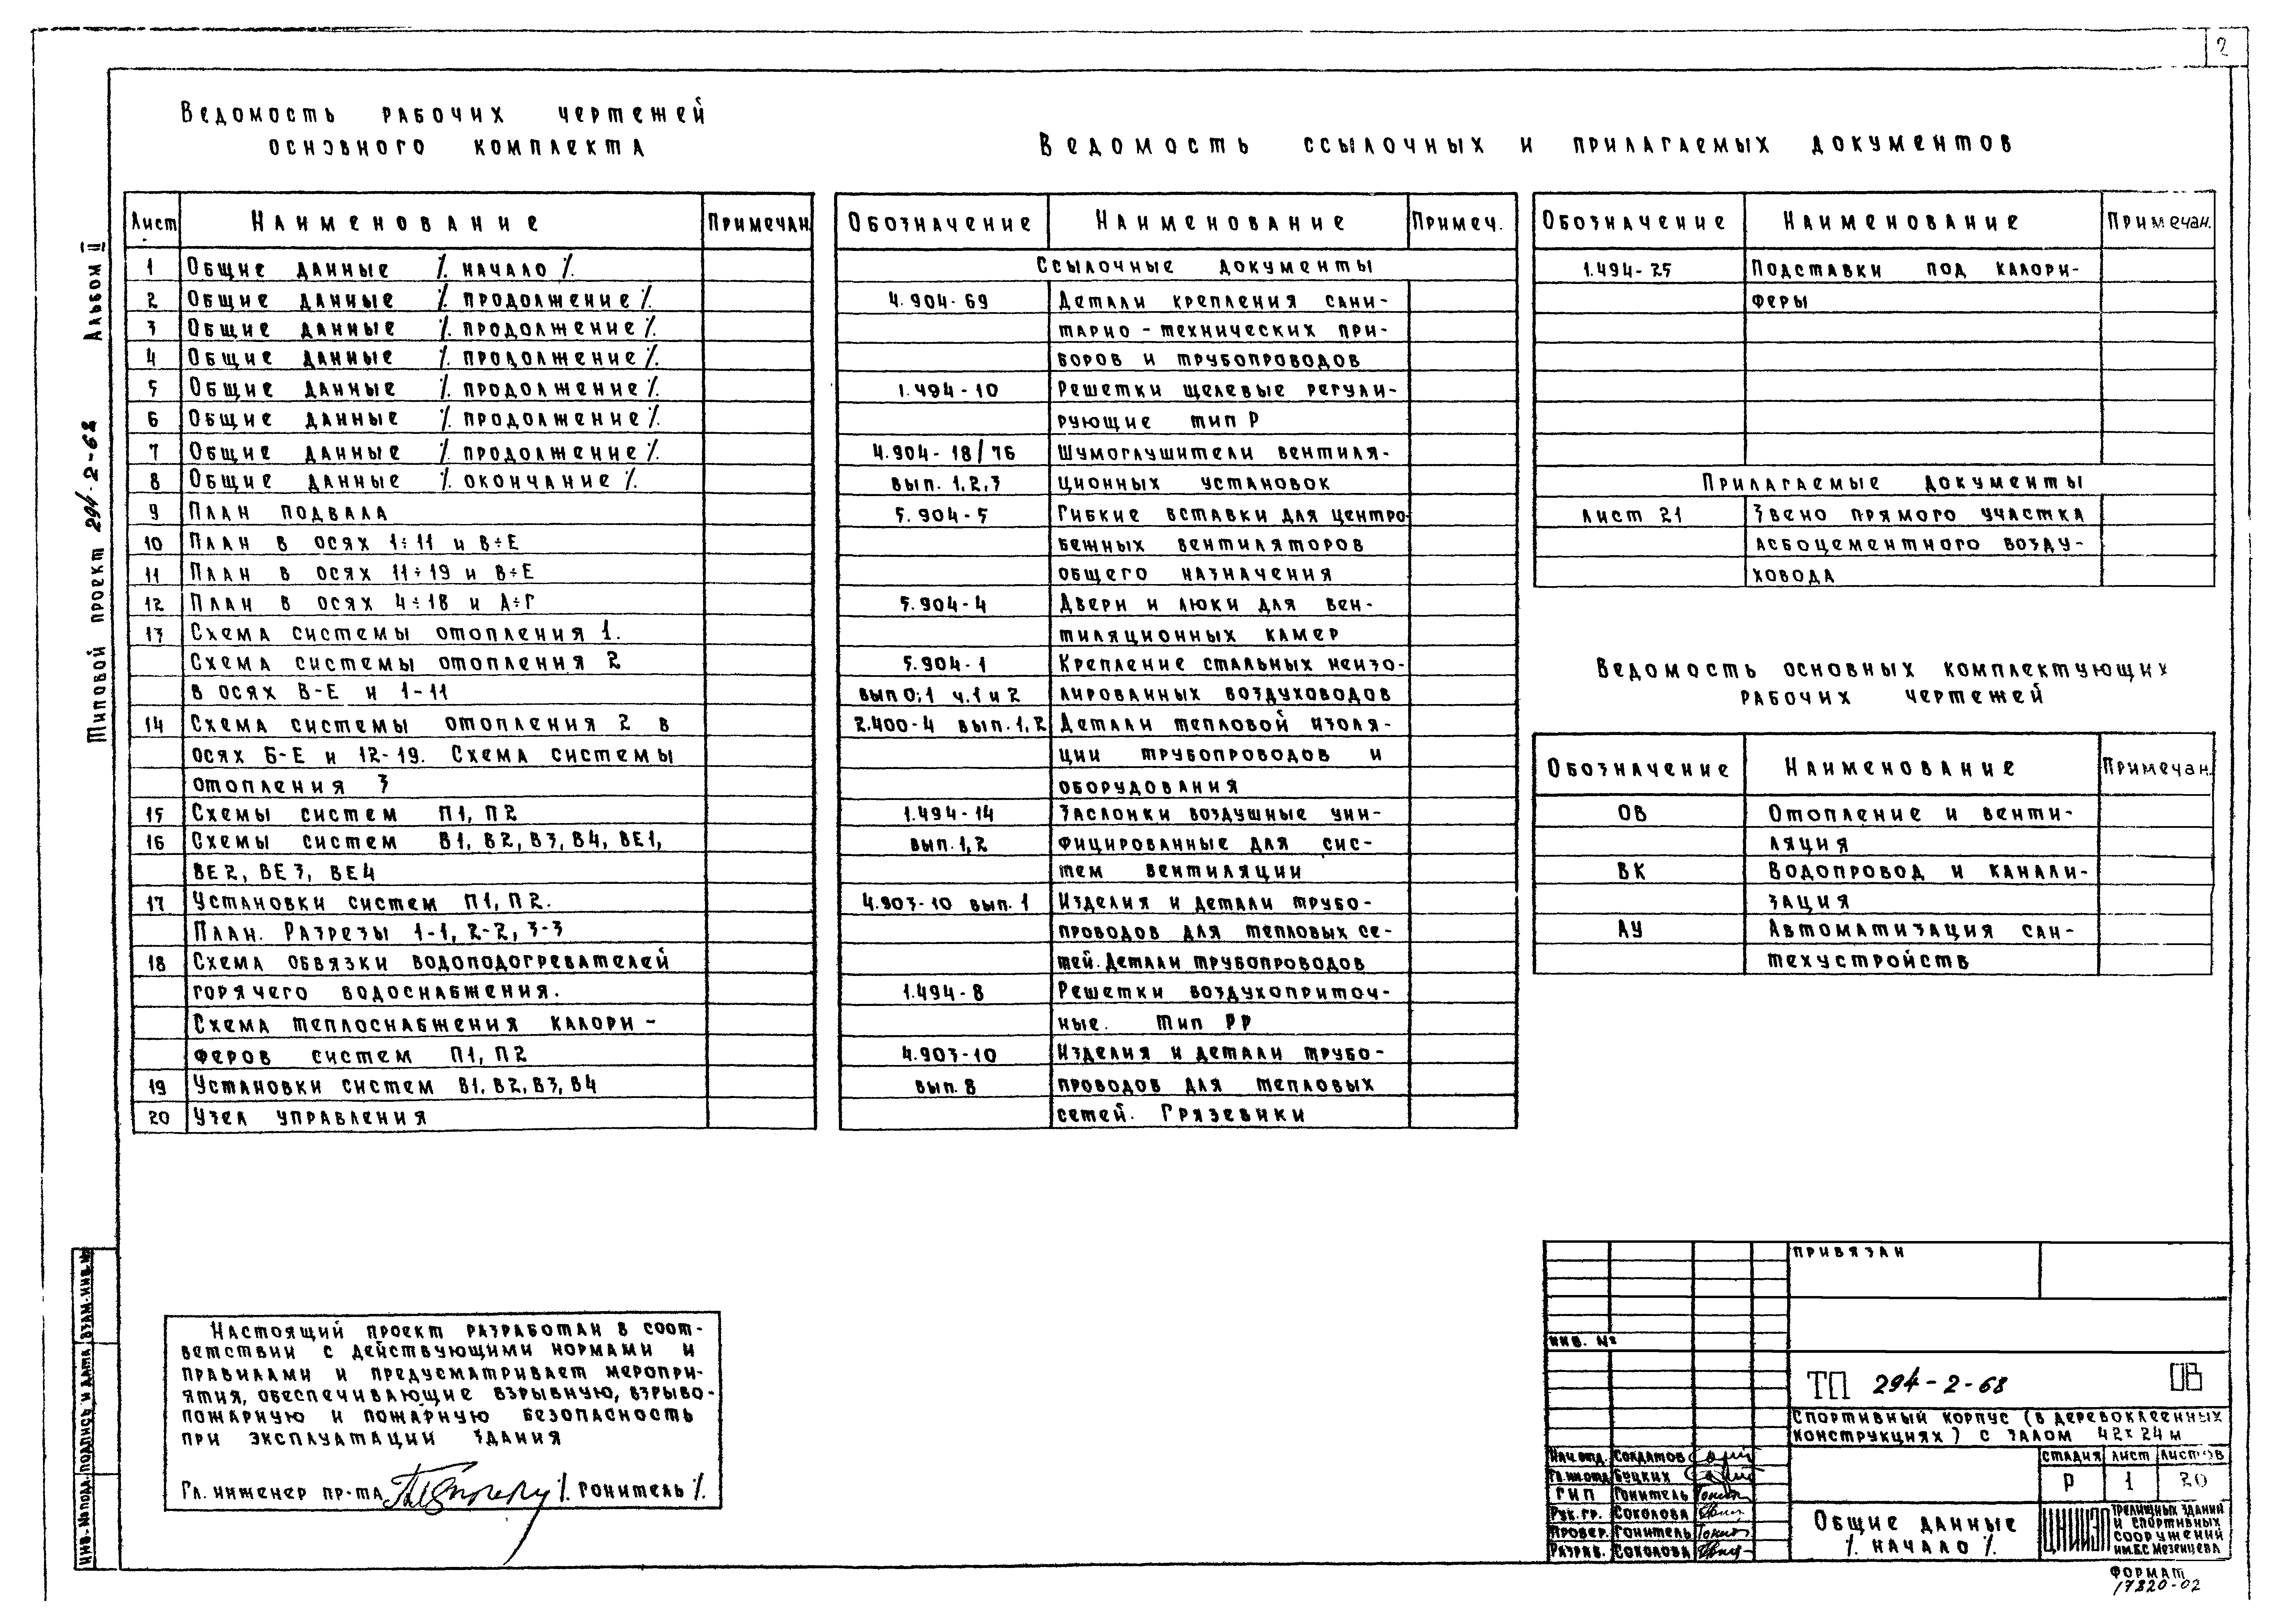 2
Ведомость рабочих чертежей
основного комплекта
Лист Наименование Примечан.
1 Общие данные ⁒ начало ⁒
2 Общие данные ⁒ продолжение ⁒
3 Общие данные ⁒ продолжение ⁒
4 Общие данные ⁒ продолжение ⁒
5 Общие данные ⁒ продолжение ⁒
6 Общие данные ⁒ продолжение ⁒
7 Общие данные ⁒ продолжение ⁒
8 Общие данные ⁒ окончание ⁒
9 План подвала
10 План в осях 1÷11 и В÷Е
11 План в осях 11÷19 и В÷Е
12 План в осях 4÷18 и А÷Г
13 Схема системы отопления 1.
Схема системы отопления 2
в осях В-Е и 1-11
14 Схема системы отопления 2 в
осях Б-Е и 12-19. Схема системы
отопления 3
15 Схемы систем П1, П2
16 Схемы систем В1, В2, В3, В4, ВЕ1,
ВЕ2, ВЕ3, ВЕ4
17 Установки систем П1, П2.
План. Разрезы 1-1, 2-2, 3-3
18 Схема обвязки водоподогревателей
горячего водоснабжения.
Схема теплоснабжения калори-
феров систем П1, П2
19 Установки систем В1, В2, В3, В4
20 Узел управления
Ведомость ссылочных и прилагаемых документов
Обозначение Наименование Примеч.
Ссылочные документы
4.904-69 Детали крепления сани-
тарно-технических при-
боров и трубопроводов
1.494-10 Решетки щелевые регули-
рующие тип Р
4.904-18/76 Шумоглушители вентиля-
вып. 1,2,3 ционных установок
5.904-5 Гибкие вставки для центро
бежных вентиляторов
общего назначения
5.904-4 Двери и люки для вен-
тиляционных камер
5.904-1 Крепление стальных неизо-
вып 0;1 ч.1 и 2 лированных воздуховодов
2.400-4 вып. 1,2 Детали тепловой изоля-
ции трубопроводов и
оборудования
1.494-14 Заслонки воздушные уни-
вып. 1,2 фицированные для сис-
тем вентиляции
4.903-10 вып. 1 Изделия и детали трубо-
проводов для тепловых се-
тей. Детали трубопроводов
1.494-8 Решетки воздухоприточ-
ные. Тип РР
4.903-10 Изделия и детали трубо-
вып. 8 проводов для тепловых
сетей. Грязевики
Обозначение Наименование Примечан.
1.494-25 Подставки под калори-
феры
Прилагаемые документы
Лист 21 Звено прямого участка
асбоцементного возду-
ховода
Ведомость основных комплектующих
рабочих чертежей
Обозначение Наименование Примечан.
ОВ Отопление и венти-
ляция
ВК Водопровод и канали-
зация
АУ Автоматизация сан-
техустройств
Типовой проект 294-2-68 Альбом II
Инв. № подл. Подпись и дата Взам. инв. №
Настоящий проект разработан в соот-
ветствии с действующими нормами и
правилами и предусматривает меропри-
ятия, обеспечивающие взрывную, взрыво-
пожарную и пожарную безопасность
при эксплуатации здания
Гл. инженер пр-та ⁒ Гонитель ⁒
Привязан
Инв. №
ТП 294-2-68 ОВ
Спортивный корпус (в деревоклеенных
конструкциях) с залом 42×24 м
Нач. отд. Солдатов
Гл. ин отд Буцких
ГИП Гонитель
Рук. гр. Соколова
Провер. Гонитель
Разраб. Соколова
Стадия Лист Листов
Р 1 20
Общие данные
⁒ начало ⁒
ЦНИИЭП
зданий
и спортивных
сооружений
им. Б.С. Мезенцева
Формат
17820-02